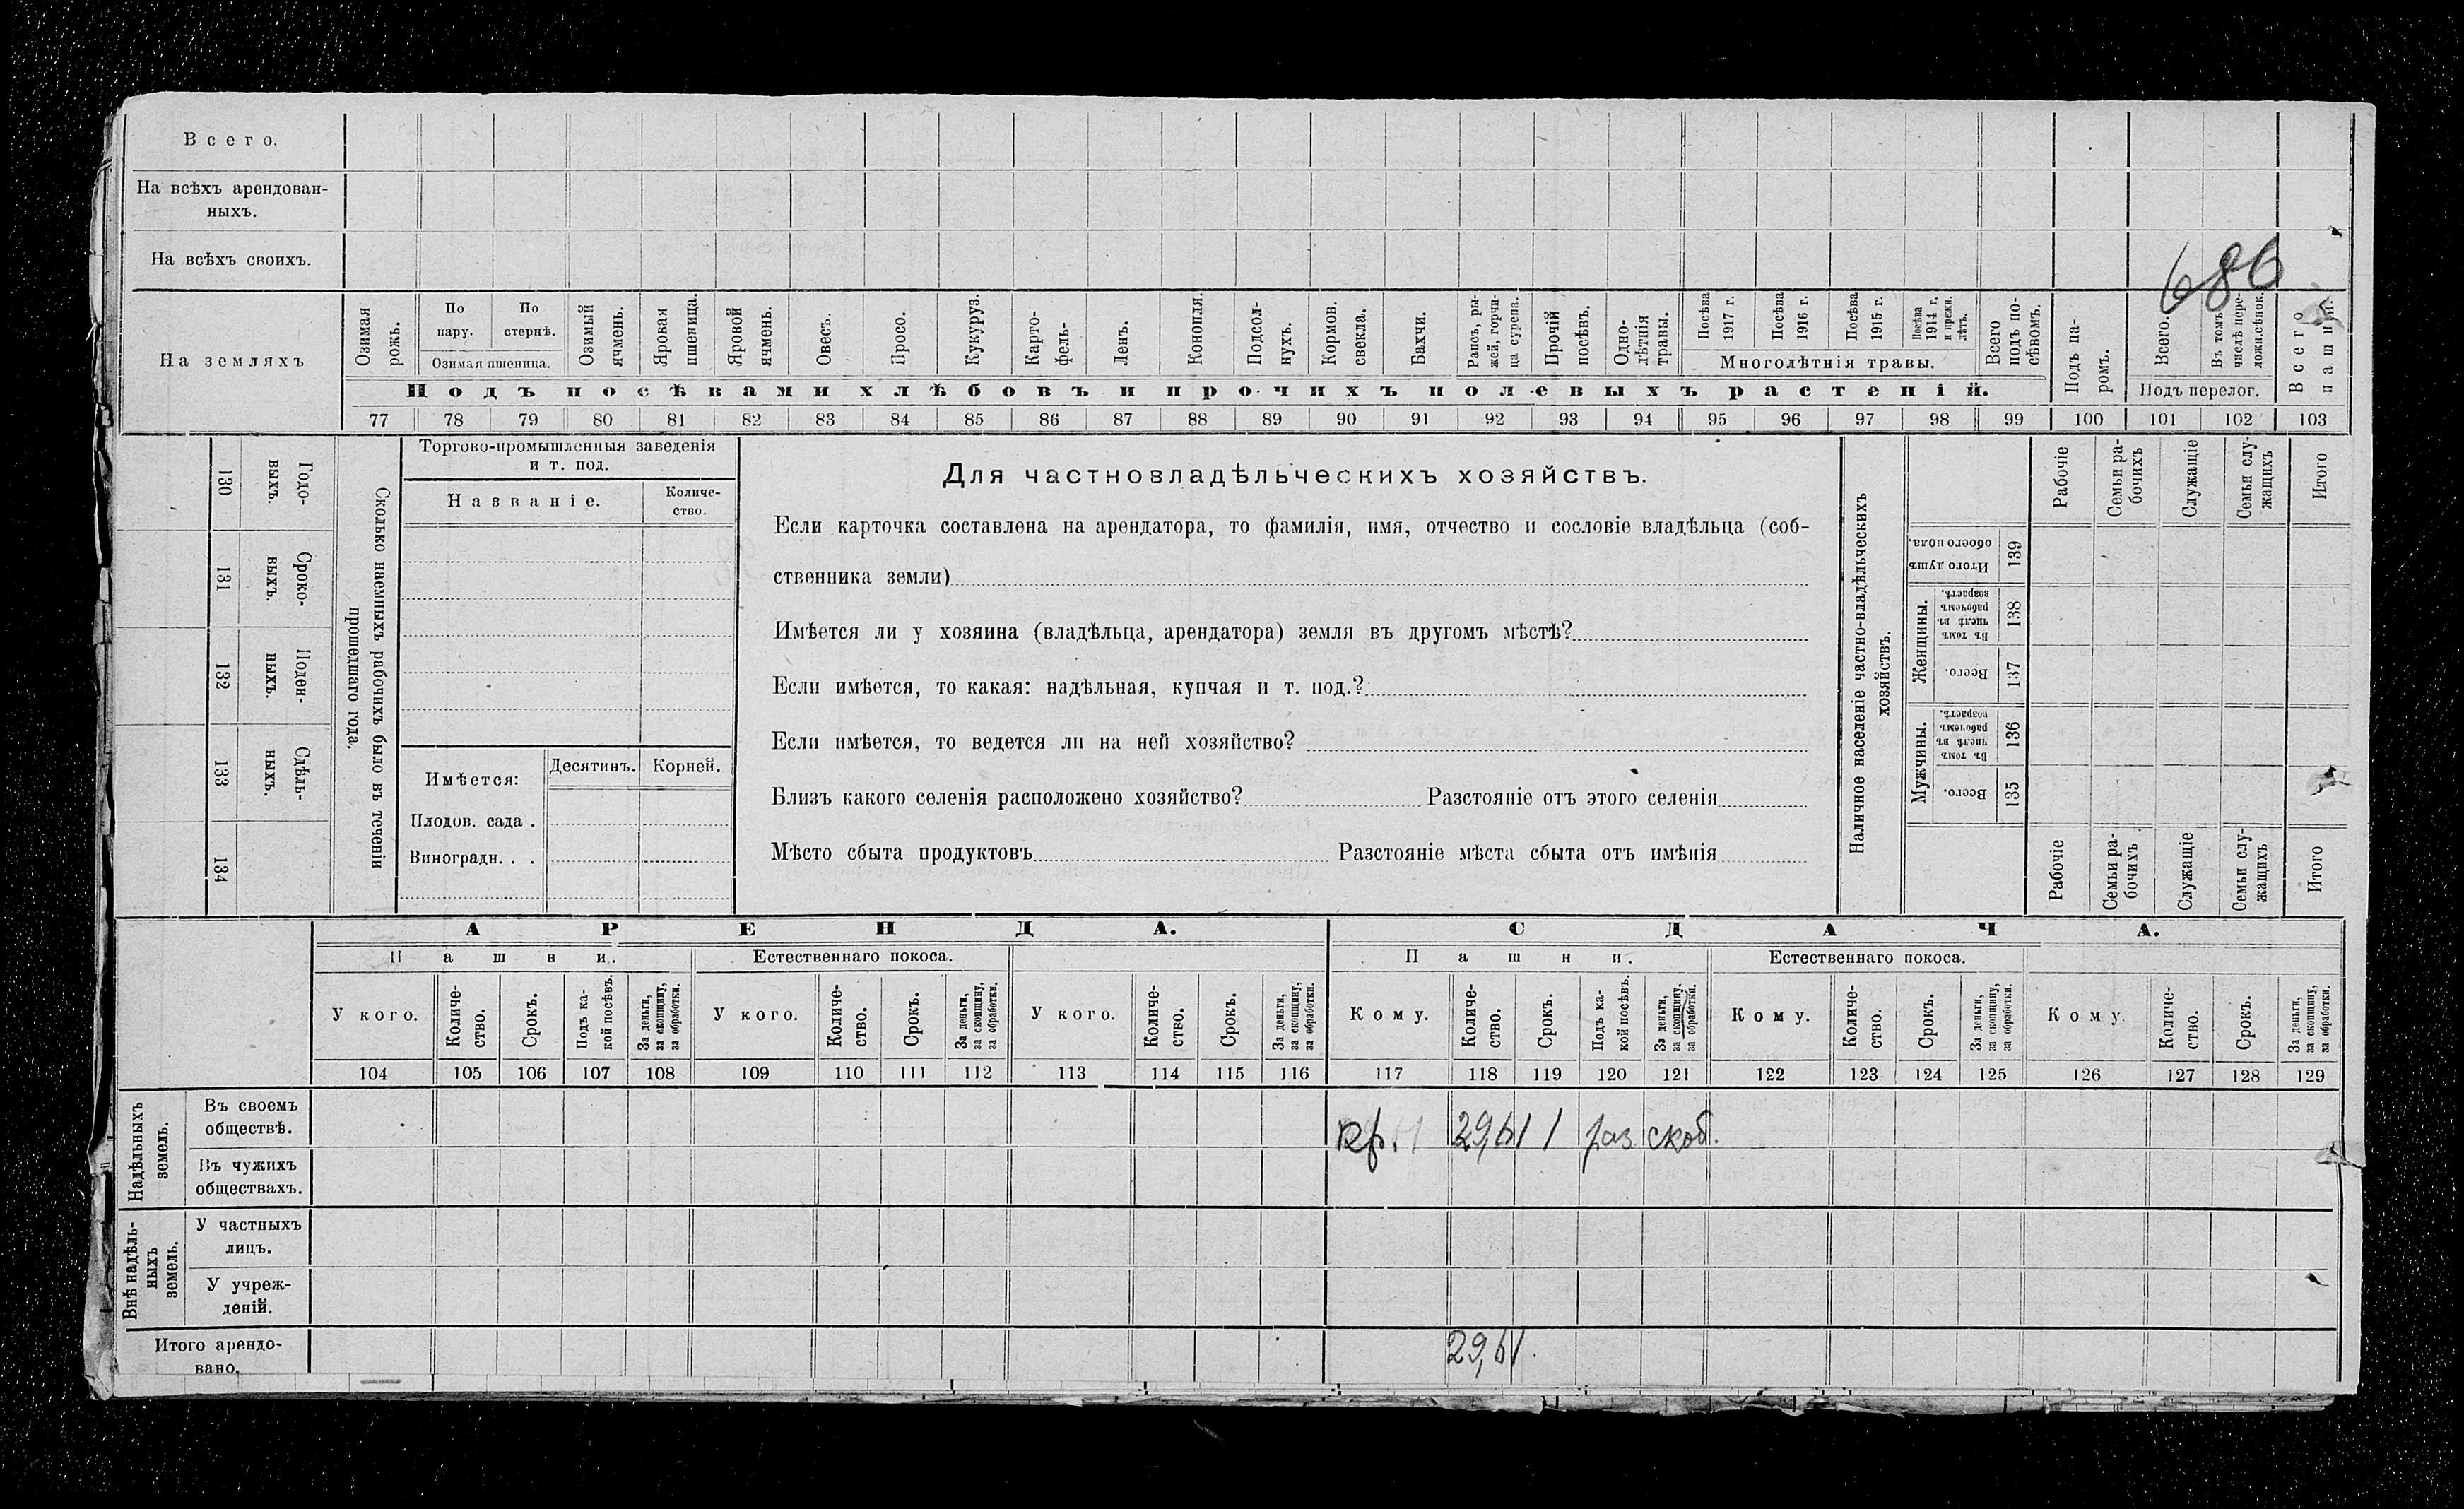 Всего.
На всѣхъ арендован-
ныхъ.
На всѣхъ своихъ.
686
На земляхъ
Озимая рожь.
По пару.
По стернѣ.
Озимая пшеница.
Озимый ячмень.
Яровая пшеница.
Яровой ячмень.
Овесъ.
Просо.
Кукуруз.
Карто-
фель-
Ленъ.
Конопля.
Подсол-
нухъ.
Кормов. свекла.
Бахчи.
Рапсъ, ры-
жей, горчи-
ца сурепа.
Прочій посѣвъ.
Одно-
лѣтнія травы.
Посѣва 1917 г.
Посѣва 1916 г.
Посѣва 1915 г.
Посѣва 1914 г. и прежн. лѣтъ.
Многолѣтнія травы.
Всего подъ по-
сѣвомъ.
Подъ посѣвами хлѣбовъ и прочихъ полевыхъ растеній.
Подъ па-
ромъ.
Всего.
Въ томъ числѣ пере-
ложн. сѣнок.
Подъ перелог.
Всего пашни.
77 78 79 80 81 82 83 84 85 86 87 88 89 90 91 92 93 94 95 96 97 98 99 100 101 102 103
130 Годо-
выхъ.
131 Сроко-
выхъ.
132 Поден-
ныхъ.
133 Сдѣль-
ныхъ.
134
Сколько наемныхъ рабочихъ было въ теченіи
прошедшаго года.
Торгово-промышленныя заведенія
и т. под.
Названіе.
Количе-
ство.
Имѣется:
Десятинъ.
Корней.
Плодов. сада .
Виноградн. . .
Для частновладѣльческихъ хозяйствъ.
Если карточка составлена на арендатора, то фамилія, имя, отчество и сословіе владѣльца (соб-
ственника земли)
Имѣется ли у хозяина (владѣльца, арендатора) земля въ другомъ мѣстѣ?
Если имѣется, то какая: надѣльная, купчая и т. под.?
Если имѣется, то ведется ли на ней хозяйство?
Близъ какого селенія расположено хозяйство? Разстояніе отъ этого селенія
Мѣсто сбыта продуктовъ Разстояніе мѣста сбыта отъ имѣнія
Наличное населеніе частно-владѣльческихъ
хозяйствъ.
Рабочіе
Семьи ра-
бочихъ
Служащіе
Семьи слу-
жащихъ
Итого
Итого душъ обоего пола. 139
Женщины.
Въ томъ числѣ въ рабочемъ возрастѣ. 138
Всего. 137
Мужчины.
Въ томъ числѣ въ рабочемъ возрастѣ. 136
Всего. 135
Рабочіе
Семьи ра-
бочихъ
Служащіе
Семьи слу-
жащихъ
Итого
АРЕНДА.
СДАЧА.
Пашни.
Естественнаго покоса.
Пашни.
Естественнаго покоса.
У кого.
Количе-
ство.
Срокъ.
Подъ ка-
кой посѣвъ.
За деньги, за скопщину, за обработки.
У кого.
Количе-
ство.
Срокъ.
За деньги, за скопщину, за обработки.
У кого.
Количе-
ство.
Срокъ.
За деньги, за скопщину, за обработки.
Кому.
Количе-
ство.
Срокъ.
Подъ ка-
кой посѣвъ.
За деньги, за скопщину, за обработки.
Кому.
Количе-
ство.
Срокъ.
За деньги, за скопщину, за обработки.
Кому.
Количе-
ство.
Срокъ.
За деньги, за скопщину, за обработки.
104 105 106 107 108 109 110 111 112 113 114 115 116 117 118 119 120 121 122 123 124 125 126 127 128 129
Надѣльныхъ земель.
Въ своемъ
обществѣ.
кр. 1 раз
Въ чужихъ
обществахъ.
Внѣ надѣль-
ныхъ земель.
У частныхъ
лицъ.
У учреж-
деній.
Итого арендо-
вано.